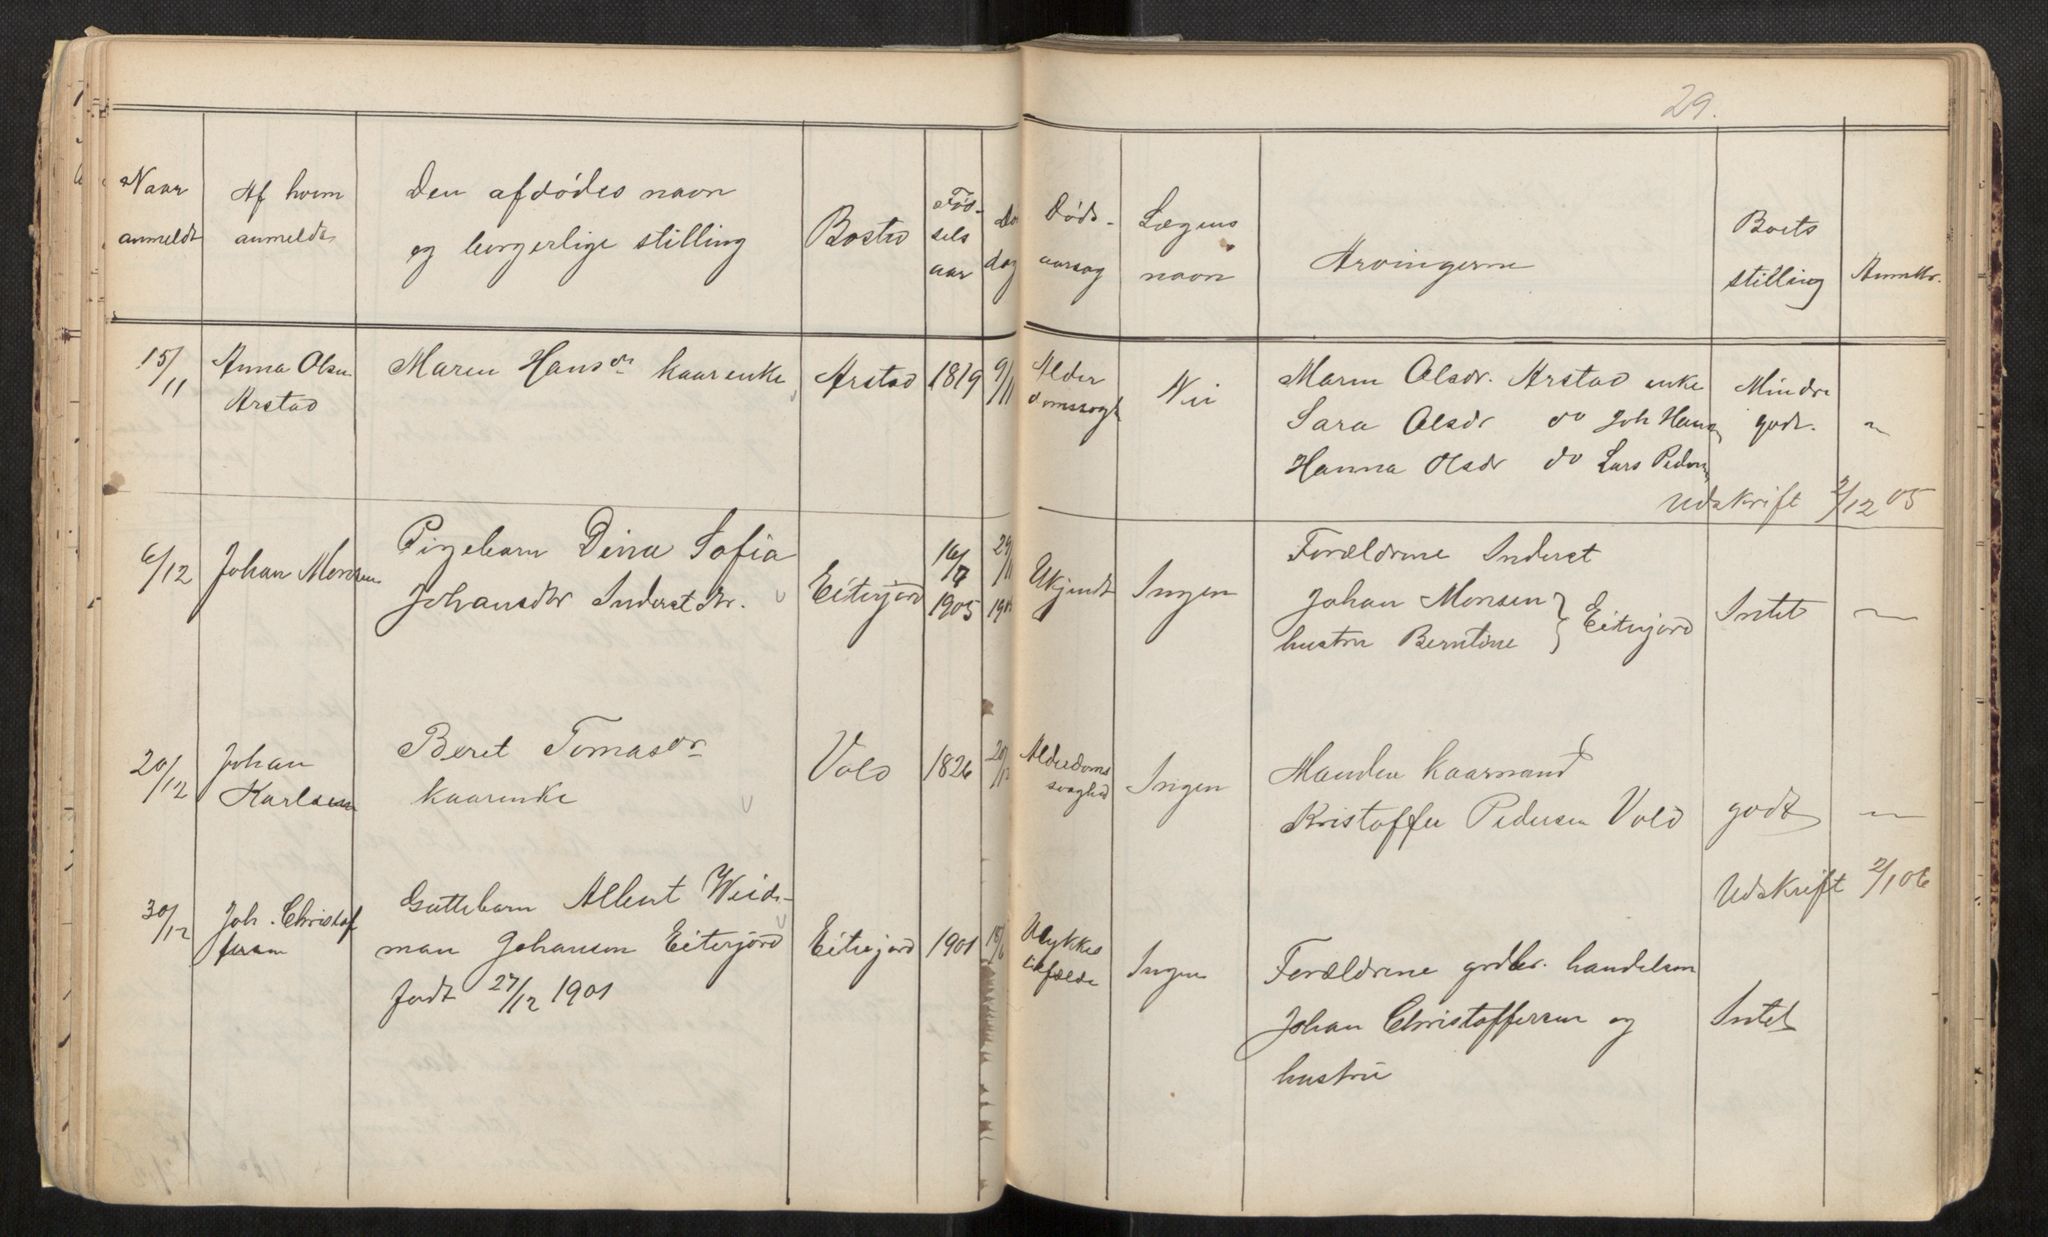 29.
Naar anmeldt
Af hvem anmeldt
Den afdødes navn og borgerlige stilling
Bosted
Fød- sels aar
Dø dag
Døds- aarsag
Lægens navn
Arvingerne
Boets stilling
Anmkr.
15/11 Anna Olsen Maren Hansdr kaarenke Arstad 1819 9/11 Alder Nei Maren Olsdr. Arstad enke Mindre
Arstad domssvagh Sara Olsdr do Joh Hansen godt. ~
Hanna Olsdr do Lars Pedersen
Udskrift 2/12 05
6/12 Johan Monsen Pigebarn Dina Sofia Eiterjord 16/7 1905 29/11 190 Ukjendt Ingen Forældrene Inderst
Johansdtr Inderst dtr. Johan Monsen } Eiterjord Intet ~
hustru Berntine
20/12 Johan Beret Tomasdr Vold 1826 20/12 Alderdoms Ingen Manden kaarmand
Karlsen kaarenke svaghed Kristoffer Pedersen Vold godt ~
Udskrift 2/1 06
30/12 Joh. Christof Guttebarn Albert Weid- Eiterjord 1901 18/6 Ulykkes Ingen Forældrene grdbr. handelsm
fersen man Johansen Eiterjord tilfælde Johan Christoffersen og Intet
født 27/12 1901 hustru